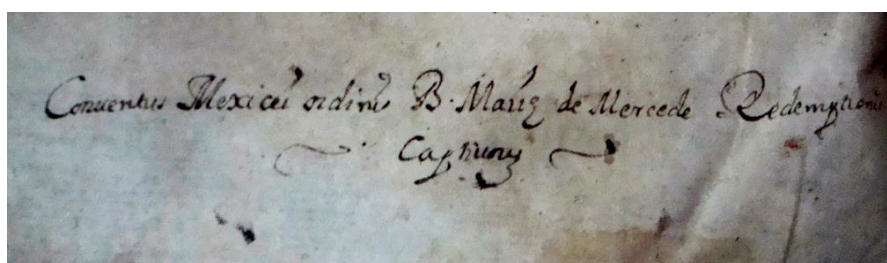 Conventus Mexicei ordinis B. Mariȩ de Mercede Redemptionis
Captivorum